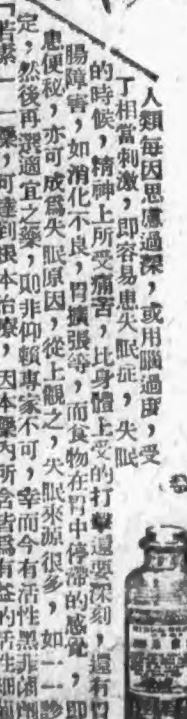 人類每因思慮過深，或用腦過度，受
了相當刺激，卽容易患失眠症，失眠
的時候，精神上所受痛苦，比身體上受的打擊還要深刻，還有
腸障害，如消化不良，胃擴張等，而食物在胃中停滯的感覺，卽
患便秘，亦可成爲失眠原因，從上觀之，失眠來源很多，如一一診
定，然後再選適宜之藥，卽非仰賴專家不可，幸而今有活性黑非
「若素」一藥，可達到根本治療，因本藥內所含皆爲有益的活性細